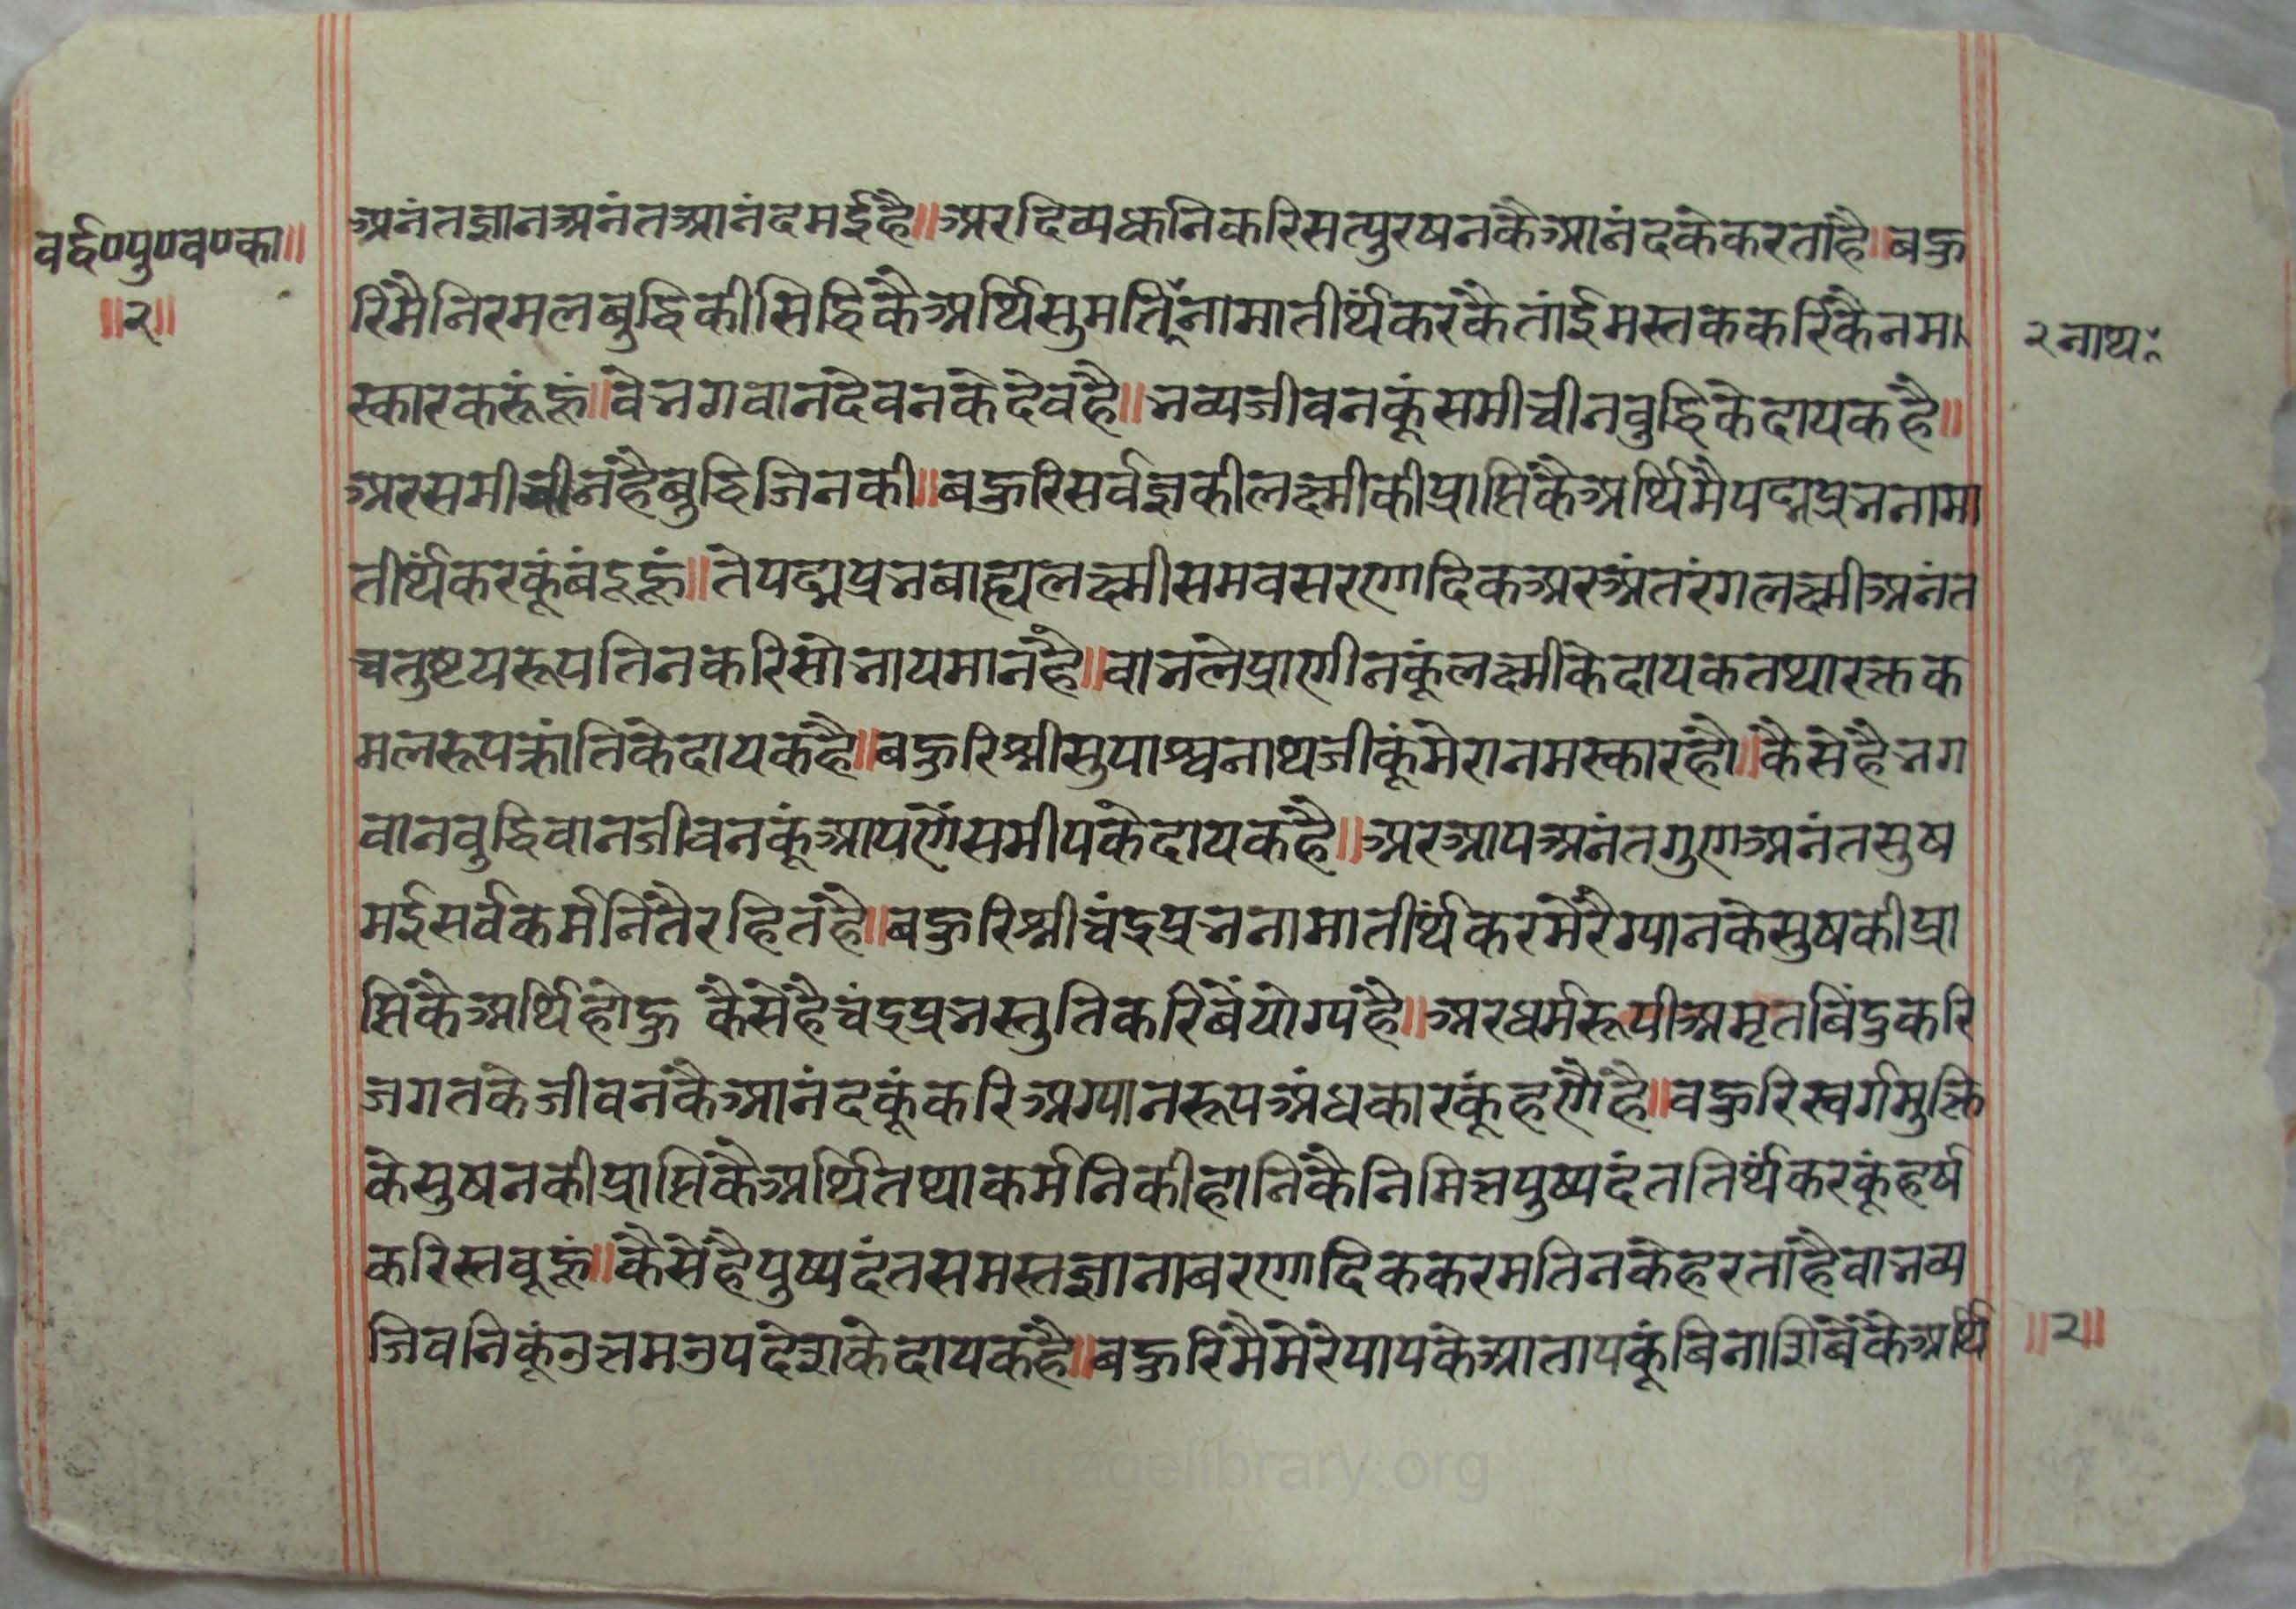 वर्द्ध०पु०व०का॥
॥२॥
अनंतज्ञानअनंतआनंदमईहै॥अरदिव्यध्वनिकरिसत्पुरषनकैआनंदकेकरताहै॥बहु
रिमैनिरमलबुद्धिकीसिद्धिकैअर्थिसुमतिनामातीर्थंकरकैतांईमस्तककरिकैनमा
२नाथ
स्कारकरूंहूं॥वेभगवानदेवनकेदेवहै॥भव्यजीवनकूंसमीचीनबुद्धिकेदायकहै॥
अरसमीचीनहैबुद्धिजिनकी॥बहुरिसर्वज्ञकीलक्ष्मीकीप्राप्तिकैअर्थिमैपद्मप्रभनामा
तीर्थंकरकूंबंदूहूं॥तेपद्मप्रभबाह्यलक्ष्मीसमवसरणादिकअरअंतरंगलक्ष्मीअनंत
चतुष्टयरूपतिनकरिसोभायमानहै॥वाभलेप्राणीनकूंलक्ष्मीकेदायकतथारक्तक
मलरूपक्रांतिकेदायकहै॥बहुरिश्रीसुपार्श्वनाथजीकूंमेरानमस्कारहौ॥कैसेहैभग
वानबुद्धिवानजीवनकूंआपणेंसमीपकेदायकहै॥अरआपअनंतगुणअनंतसुष
मईसर्वकर्मनितैंरहितहै॥बहुरिश्रीचंद्रप्रभनामातीर्थंकरमेरैग्यानकेसुषकीप्रा
प्तिकैअर्थिहोहु कैसेहैचंद्रप्रभस्तुतिकरिबेंयोग्यहै॥अरधर्मरूपीअमृतबिंदुकरि
जगतकेजीवनकैआनंदकूंकरिअग्यानरूपअंधकारकूंहणैंहै॥वहुरिस्वर्गमुक्ति
केसुषनकीप्राप्तिकैअर्थितथाकर्मनिकीहानिकैनिमित्तपुष्पदंततिर्थंकरकूंहर्ष
करिस्तवूहूं॥कैसेहैपुष्पदंतसमस्तज्ञानाबरणादिककरमतिनकेहरताहैवाभव्य
जिवनिकूंउत्तमउपदेशकेदायकहै॥बहुरिमैमेरेपापकेआतापकूंबिनाशिबेंकेअर्थि
॥२॥